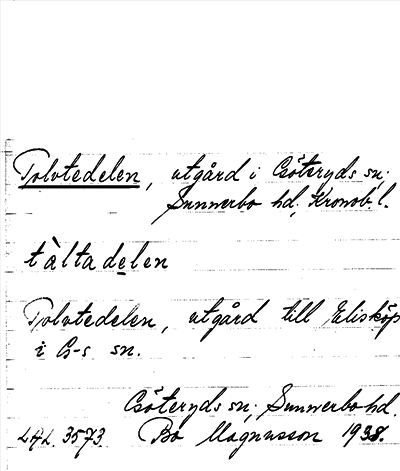 Tolvtedelen, utgård i Göteryds sn;
Sunnerbo hd, Kronob. l.
tàltadelen
Tolvtedelen, utgård till Elisköp
i G-s sn.
Göteryds sn; Sunnerbo hd.
LAL. 3573. Bo Magnusson 1938.